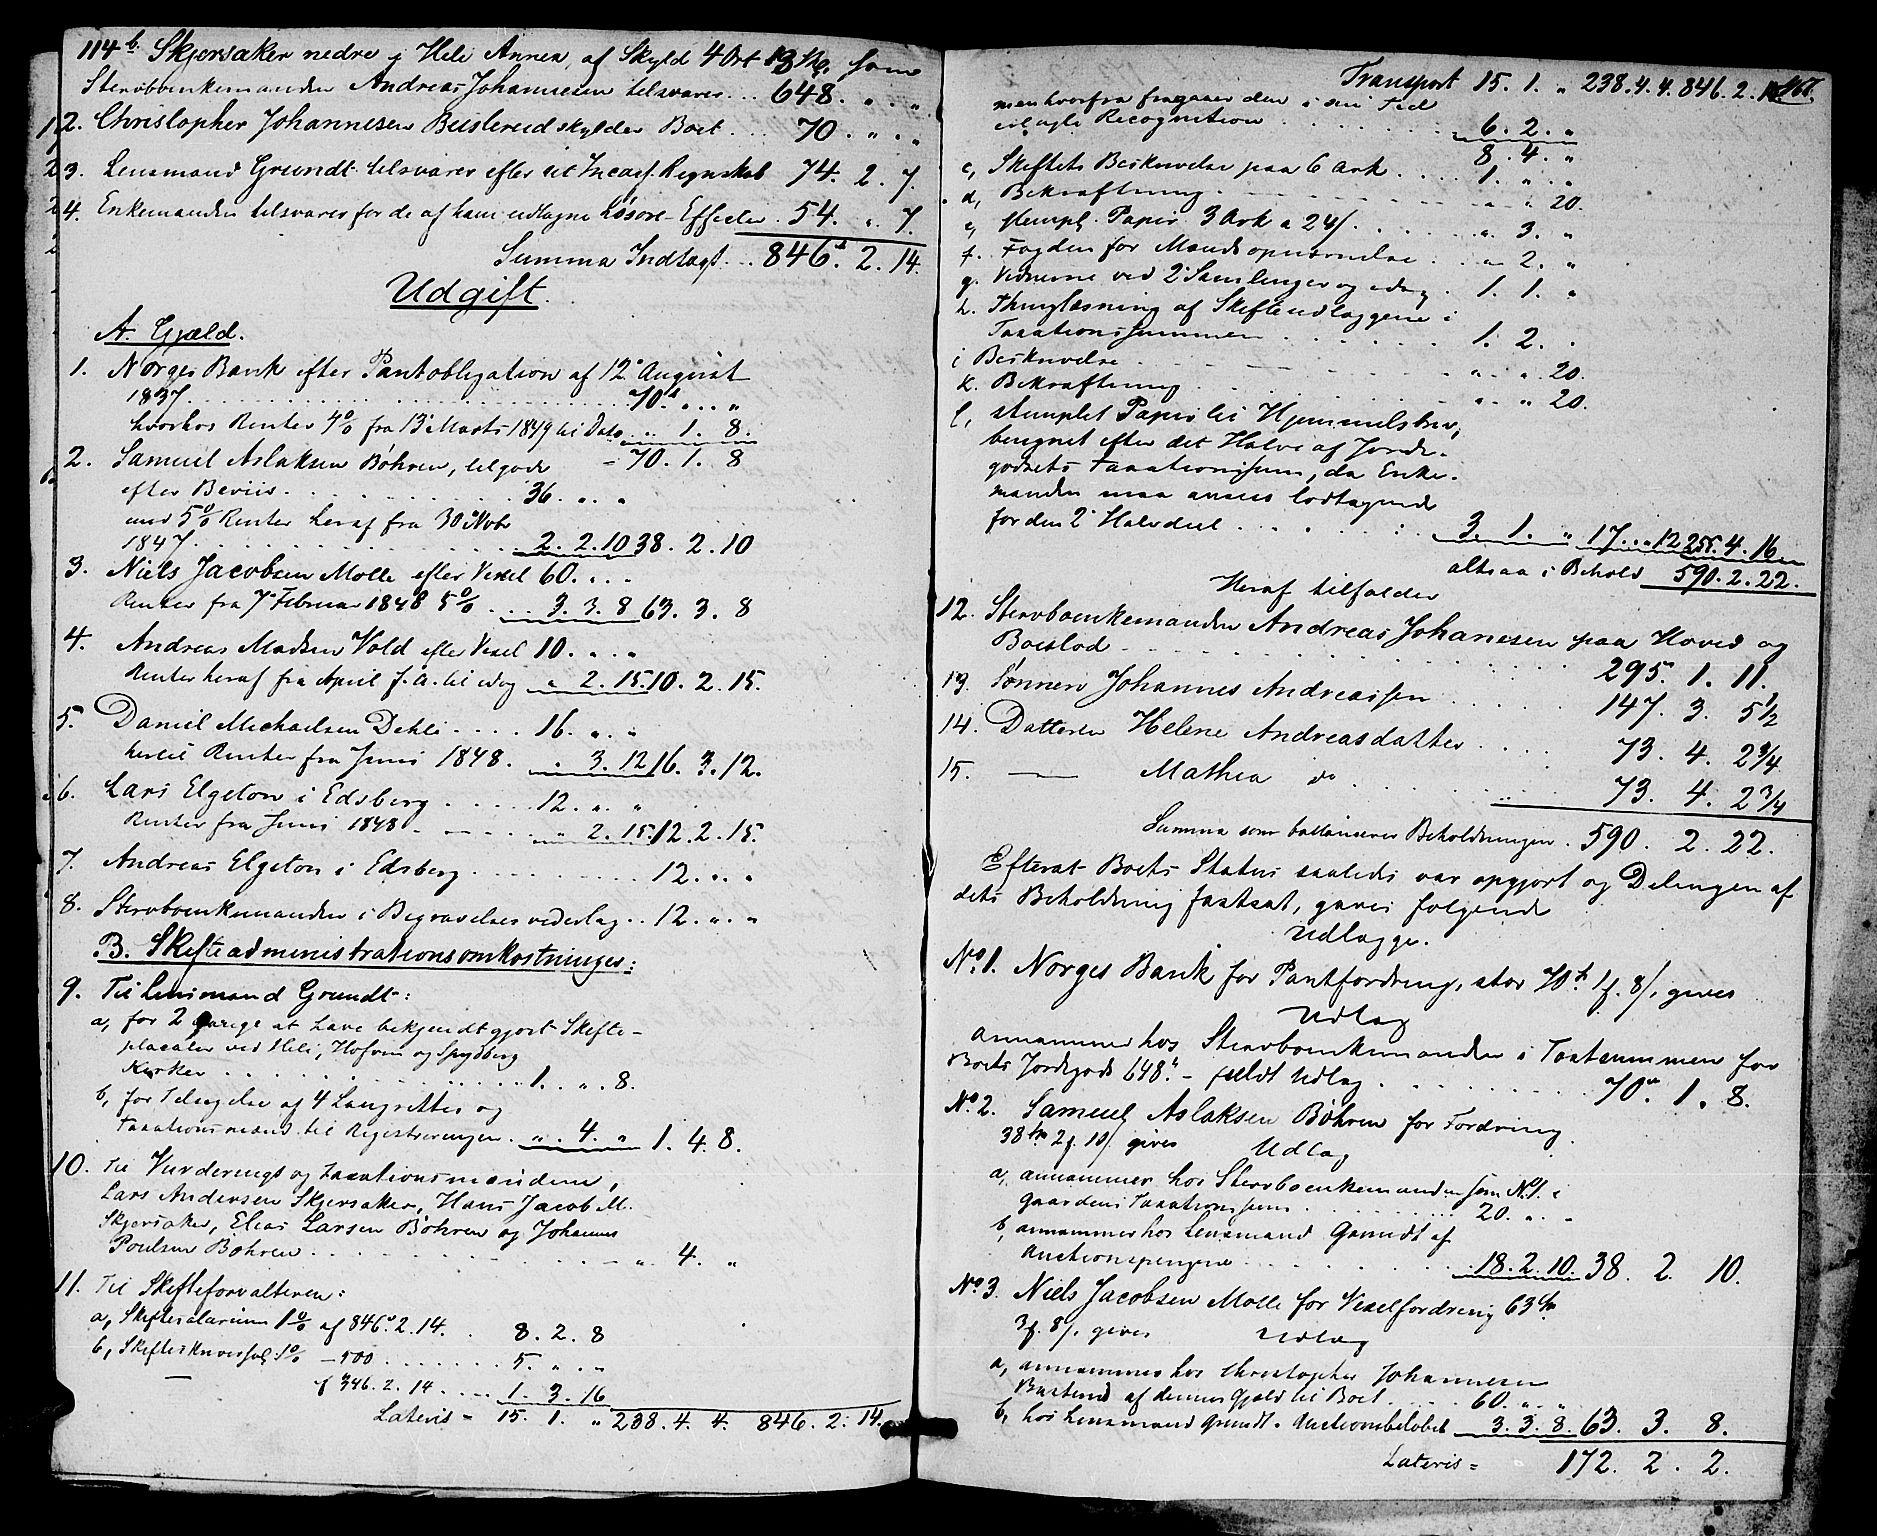 114b Skjørsaker nedre i Heli Annex, af Skyld 4 Ort 13 Sk, som
Stervboenkemanden Andreas Johannesen tilsvarer .. 648. „ . „
1, 2. Christopher Johannesen Busterud skylder Boet ... 70. „ . „
3. Lensmand Grundt tilsvarer efter sit Incass. Regnskab 74. 2. 7.
4. Enkemanden tilsvarer for de af ham udtagne Løsøre Effecter . 54. „ . 7.
Summa Indtægt .. 846. 2. 14.
Udgift.
A. Gjæld.
1. Norges Bank efter Pantobligation af 12 August
1837 . . . 70. „ . „
hvorhos Renter 4% fra 13 Marts 1849 til Dato „ . 1. 8.
= 70. 1. 8
2. Samuel Aslaksen Bøhren, tilgode
efter Beviis . . . 36. „ . „
med 5% Renter heraf fra 30 Novbr
1847 . . . 2. 2. 10 38. 2. 10
3. Niels Jacobsen Molle efter Vexel 60. „ . „
Renter fra 7 Februar 1848 5% ... 3. 3. 8 63. 3. 8
4. Andreas Madsen Vold efter Vexel 10. „ . „
Renter heraf fra April f. A. til idag „ 2. 15. 10. 2. 15.
5. Daniel Michaelsen Dehli .... 16. „ . „
hertil Renter fra Juni 1848. „ 3. 12 16. 3. 12.
6. Lars Elgeton i Edsberg ..... 12. „ . „
Renter fra Juni 1848 . . . „ 2. 15. 12. 2. 15.
7. Andreas Elgeton i Edsberg . . . 12. „ . „
8. Stervboenkemanden i Begravelsesvederlag .. 12. „ . „
B. Skifteadministrationsomkostninger:
9. Til Lensmand Grundt:
a, for 2 gange at have bekjendtgjort Skifte-
placater ved Heli, Hofvin og Spydberg
Kirker . . . 1. „ . 8.
b, for Tilsigelse af 4 Laugrettes og
Taxationsmænd til Registreringen . „ . 4. „ 1. 4. 8.
10. Til Vurderings og Taxationsmændene,
Lars Andersen Skjørsaker, Hans Jacob M.
Skjørsaker, Elias Larsen Bøhren og Johannes
Poulsen Bøhren . . . „ . 4. „
11. Til Skifteforvalteren:
a, Skiftesalarium 1% af 846. 2. 14. . 8. 2. 8
b, Skifteskriversal: 1% – 500 ....... 5. „ . „
– ½ 346. 2. 14 .... 1. 3. 16
Lateris = 15. 1. „ 238. 4. 4. 846. 2. 14.
167.
Transport 15. 1. „ 238. 4. 4. 846. 2. 14
men hvorfra fragaaer den i sin Tid
erlagte Recognition . . . 6. 2. „
8. 4. „
c, Skiftets Beskrivelse paa 6 Ark .... 1. „ . „
d, Bekræftning . . . „ . „ 20.
e, stempl. Papir 3 Ark a 24 ß . . . „ . 3. „
f. Fogden for Mænds opnævnelse . „ . 2. „
g. Vidnerne ved 2 Samlinger og idag . 1. 1. „
h. Thinglæsning af Skifteudlæggene i
Taxationssummen . . . 1. 2. „
i Beskrivelse . . . „ . „ 20.
k. Bekræftning . . . „ . „ 20.
l, stemplet Papir til Hjemmelsbrev,
beregnet efter det Halve af Jorde-
godsets Taxationssum, da Enke-
manden maa ansees lodtagende
for den 2 Halvdeel . . . 3. 1. „ 17. „ 12 255. 4. 16
altsaa i Behold 590. 2. 22.
Heraf tilfalder
12. Stervboenkemanden Andreas Johannesen paa Hoved og
Boeslod . . . 295. 1. 11.
13. Sønnen Johannes Andreassen . . . 147. 3. 5½
14. Datteren Helene Andreasdatter . . . 73. 4. 2¾
15. — Mathea do . . . 73. 4. 2¾
Summa som ballancerer Beholdningen . 590. 2. 22.
Efterat Boets Status saaledes var opgjort og Delingen af
dets Beholdning fastsat, gaves følgende
Udlægge.
No 1. Norges Bank for Pantfordring, stor 70 1 ß 8/, gives
Udlæg
annammer hos Stervboenkemanden i Taxtsummen for
Boets Jordegods 648 – fuldt Udlæg . . . 70. 1. 8.
No 2. Samuel Aslaksen Bøhren for Fordring.
38 2 10 gives Udlæg
a, annammer hos Stervboenkemanden som No 1. i
Gaardens Taxationssum . . . 20. „ . „
b, annammer hos Lensmand Grundt af
Auctionspengene . . . 18. 2. 10. 38. 2. 10.
No 3. Niels Jacobsen Molle for Vexelfordring 63
3 8 gives Udlæg
a, annammes hos Christopher Johannesen
Busterud af dennes Gjæld til Boet .... 60. „ . „
b, hos Lensmand Grundt Auctionsbeløbet 3. 3. 8. 63. 3. 8.
Lateris = 172. 2. 2.